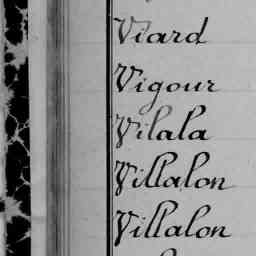 Viard
Vigour
Vilala
Villalon
Villalon